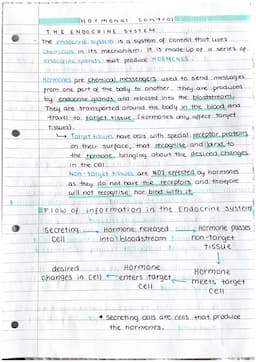 Hormonal Control
THE ENDOCRINE SYSTEM
- The endocrine system is a system of control that uses
chemicals in its mechanism. It is made up of a series of
endocrine glands that produce HORMONES.
Hormones are chemical messengers used to send messages
from one part of the body to another. They are produced
by endocrine glands and released into the bloodstream.
They are transported around the body in the blood and
travel to target tissue (hormones only affect target
tissues).
↳ Target tissues have cells with special receptor proteins
on their surface, that recognise and bind to
the hormone, bringing about the desired changes
in the cell.
Non-target tissues are NOT effected by hormones
as they do not have the receptors and therefore
will not recognise nor bind with it.
Flow of information in the Endocrine System
Secreting → Hormone released → Hormone passes
Cell into bloodstream non-target
tissue
↓
desired Hormone Hormone
changes in cell ← enters target ← meets target
Cell Cell
* Secreting cells are cells that produce
the hormones.